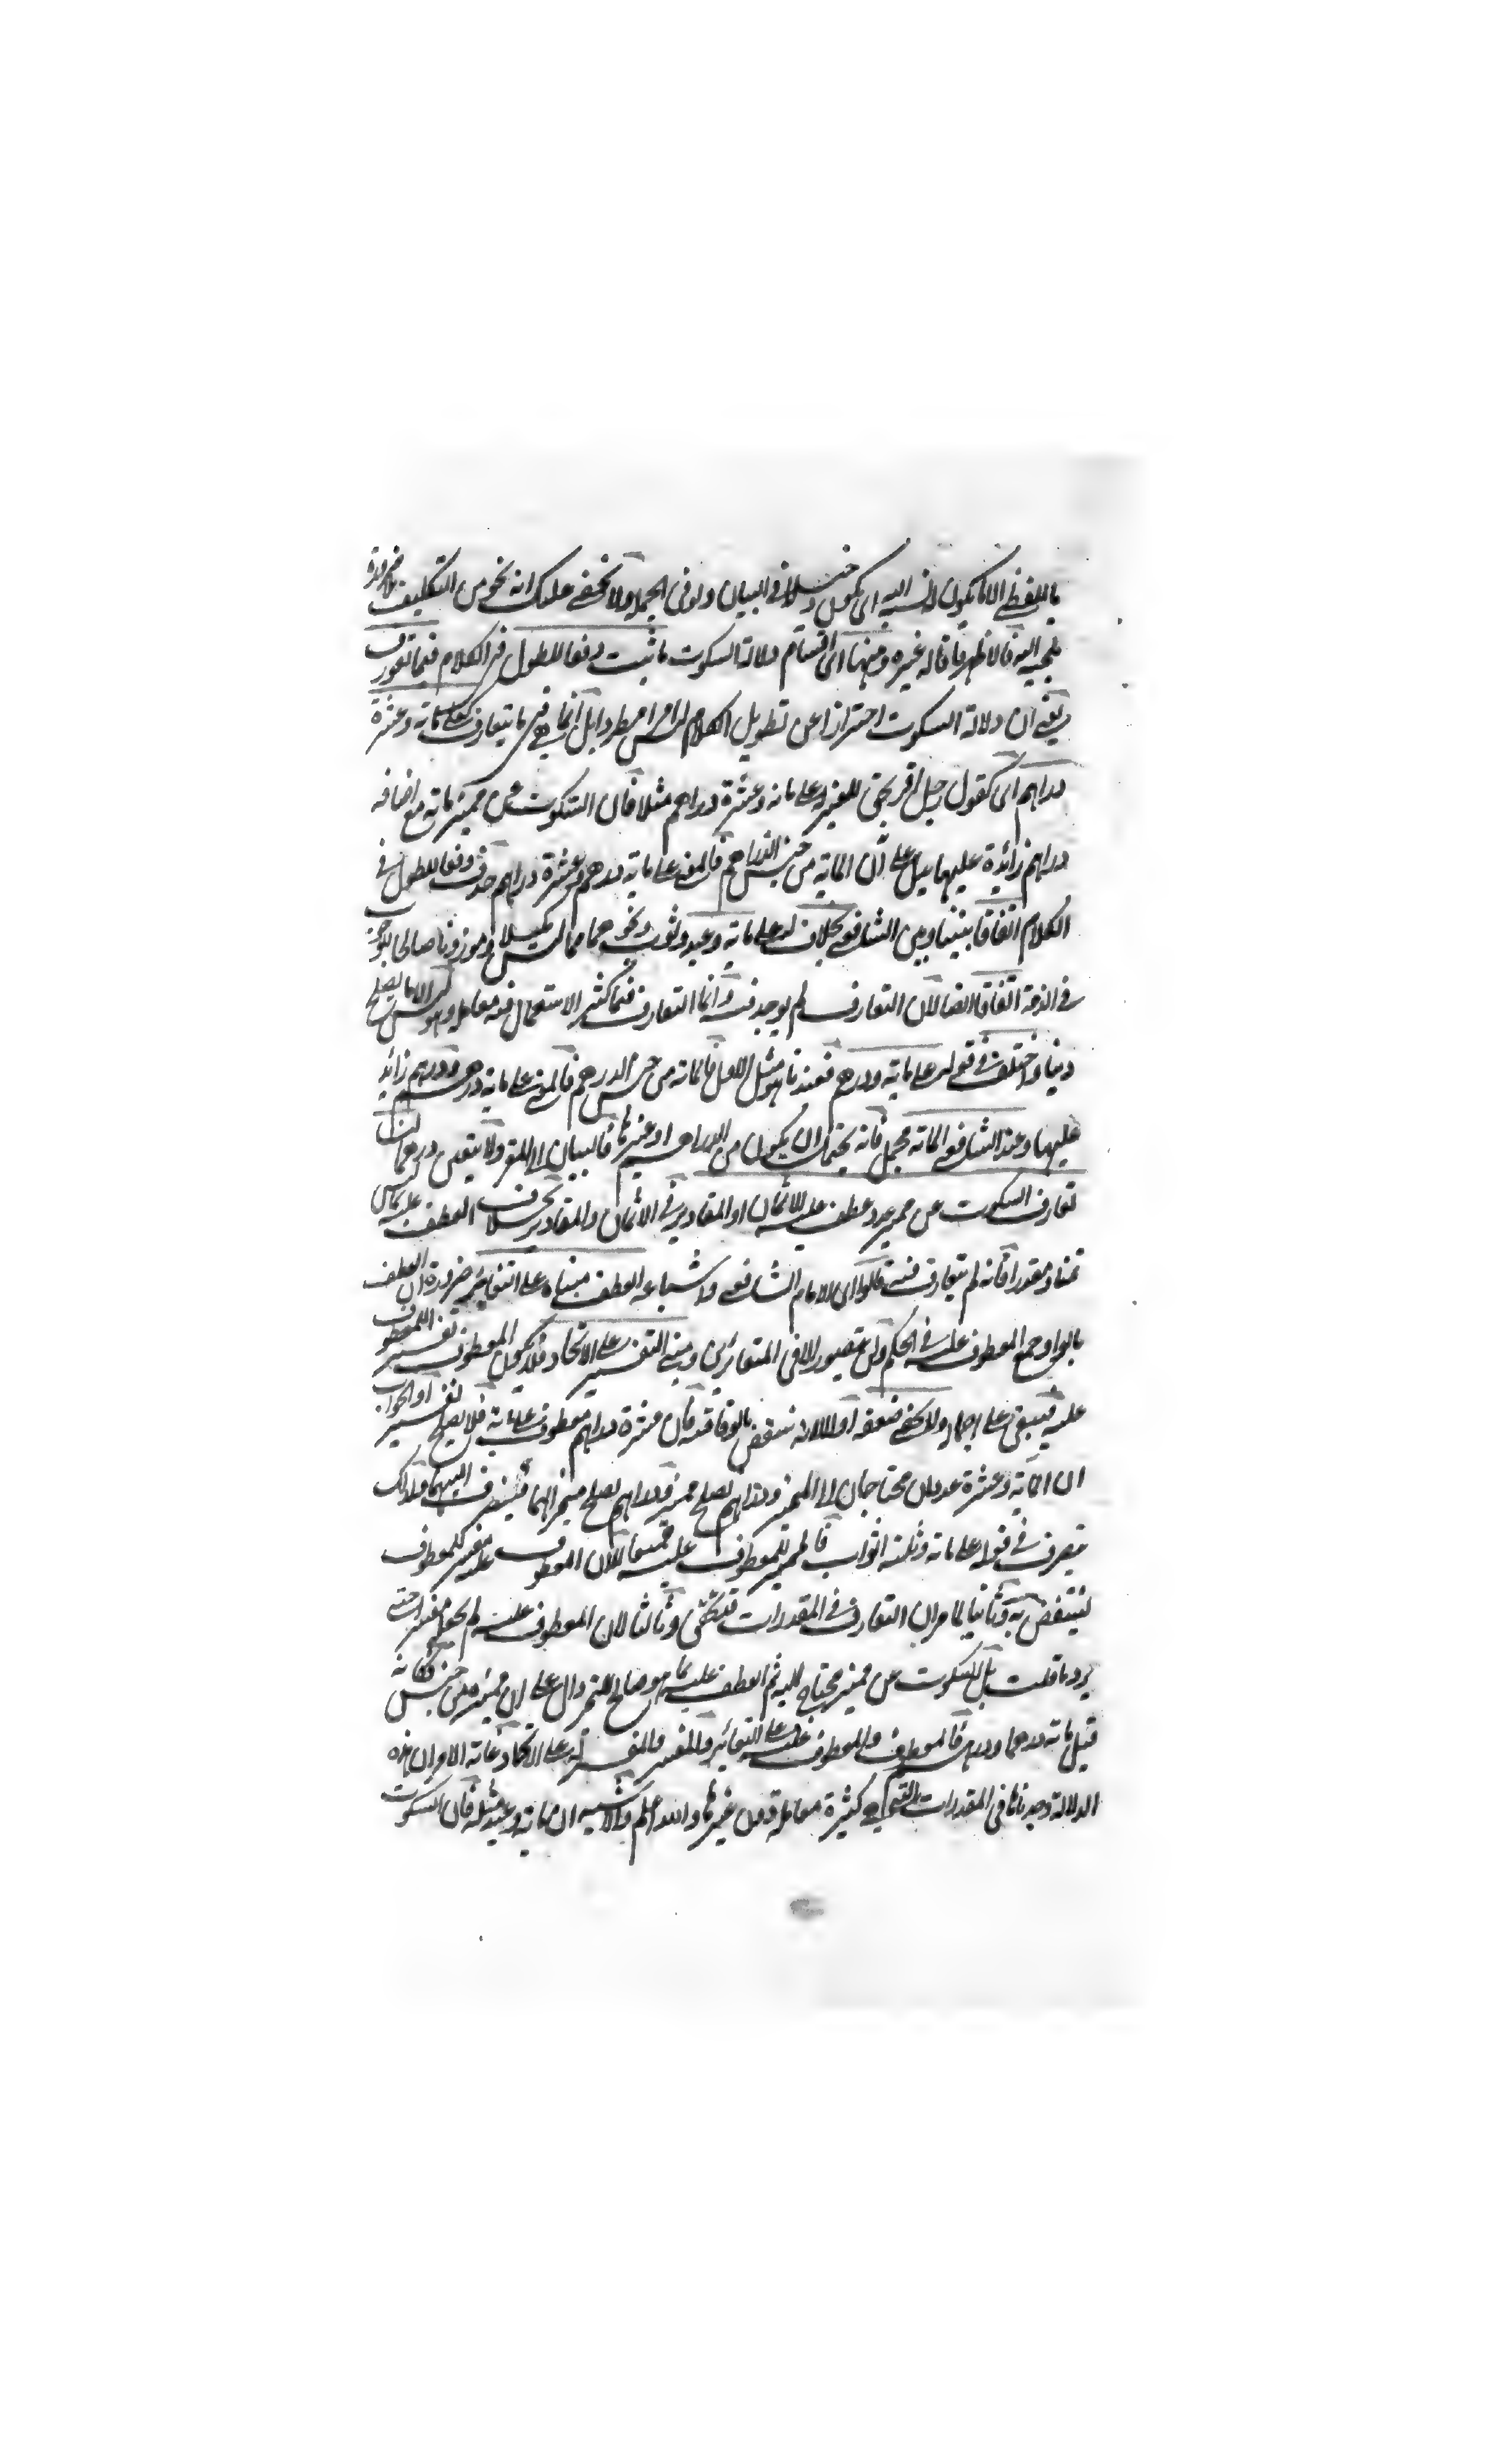 باللفظ الا ما يكون لنسبه اليه اى يكون دخيلا فى البيان ولو فى الجملة ولا يخفى عليك انه نحو من التكليف بلا ضرورة
ملجية اليه فالاظهر ما قاله غيره ومنها اى اقسام دلالة السكوت ما ثبت دفعا للطول فى الكلام فيما تعورف
يعنى ان دلالة السكوت احترازا عن تطويل الكلام ليس امرا مطردا بل انما هى فى ما يتعارف كعلى مائة وعشرة
دراهم اى كقول رجل اقر بحق للغير له على مائة وعشرة دراهم مثلا فان السكوت عن مميز مائة مع اضافة
دراهم زائدة عليها يدل على أن المائة من جنس الدراهم فالمعنى على مائة درهم وعشرة دراهم حذف دفعا للطول فى
الكلام اتفاقا بيننا وبين الشافعى بخلاف له على مائة وعبد وثوب ونحوهما مما ليس مكيلا وموزونا صالحا للوجوب
فى الذمة اتفاقا ايضا لان التعارف لم يوجد فيه وانما التعارف فيما كثر الاستعمال فيه معاملة وهو ليس الا ما يصلح
دينا واختلف فى قوله له على مائة ودرهم فعندنا هو مثل الاول فالمائة من جنس الدرهم فالمعنى على مائة درهم ودرهم زائد
عليها وعند الشافعى المائة مجمل فانه يحتمل ان يكون من الدراهم او غيرها فالبيان الى المقر ولا يتعين درهما لنا
تعارف السكوت عن مميز عدد عطف عليه الاثمان او المقادير فى الاثمان والمقادير بخلاف العطف عليه بما ليس
ثمنا ومقدرا فانه لم يتعارف فيه قالوا اى الامام الشافعى واشياعه العطف مبناه على التغاير ضرورة ان العطف
بالواو جمع المعطوف عليه فى الحكم ولن يتصور الا فى المتغائرين ومبنى التفسير على الاتحاد فلا يكون المعطوف تفسير للمعطوف
عليه فيبقى على اجماله ولا يخفى ضعفه اولا لانه منتقض بالوفاقية فان عشرة دراهم معطوف على مائة فلا يصلح تفسيرا والجواب
ان المائة وعشرة عددان محتاجان الى المميز ودراهم يصلح مميزا فدراهم يصلح مميزا لهما فينصرف اليهما ولذلك
ينصرف فى قوله على مائة وثلثة اثواب فالمميز للمعطوف عليه جميعا لا ان المعطوف عليه مفسر للمعطوف
لينتقض به وثانيا لما مر ان التعارف فى المقدرات فيكفى وثالثا لان المعطوف عليه لم يجعل مفسرا حتى
يرد ما قلت بل السكوت عن مميز محتاج اليه ثم العطف عليه بما هو صالح للتميز دال على ان مميزه من جنسه فكانه
قيل مائة درهما ودرهم فالمعطوف والمعطوف عليه على التغاير والمفسر والمفسر له على الاتحاد غاية الامر ان هذه
الدلالة وجدناها فى المقدرات التى هى كثيرة معاملة دون غيرها والله اعلم والاشبه ان مائة وعبد مثله فان السكوت